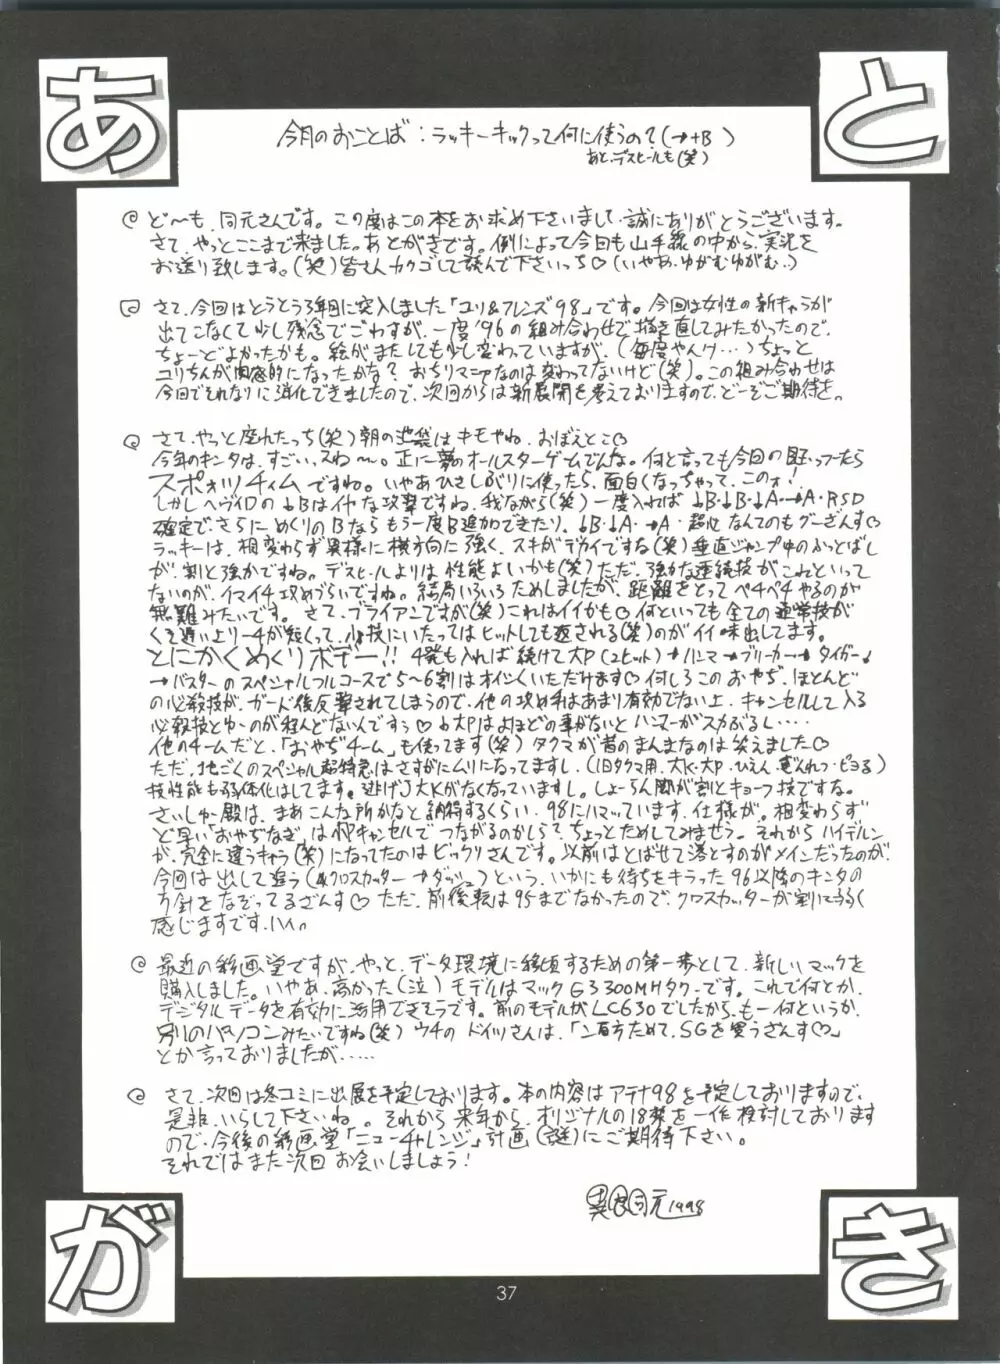 あ
と
が
き
今月のおことば：ラッキーキックって何に使うの？(→+B)
あと、デスヒールも(笑)
ど〜も、同元さんです。この度はこの本をお求め下さいまして、誠にありがとうございます。
さて、やっとここまで来ました。あとがきです。例によって今回も山手線の中から、実況を
お送り致します。(笑)皆さんカクゴして読んで下さいっち♡(いやあ、ゆがむゆがむ..)
さて、今回はとうとう3年目に突入しました「ユリ&フレンズ98」です。今回は女性の新キャラが
出てこなくて少し残念でごわすが、一度'96の組み合わせで描き直してみたかったので、
ちょーどよかったかも。絵がまたしても少し変わっていますが、(毎度やんけ…)ちょっと
ユリちんが肉感的になったかな？おちりマニアなのは変わってないけど(笑)。この組み合わせは
今回でそれなりに消化できましたので、次回からは新展開を考えておりますので、どーぞご期待を。
さて、やっと座れたっち(笑)朝の池袋はキモやね、おぼえとこ♡
今年のキンタは、すごいっスね〜。正に夢のオールスターゲームでんな。何と言っても今回の
スポオツチィムですね。いやあひさしぶりに使ったら、面白くなっちゃって、このォ！
しかしヘヴィDの↓Bはイヤな攻撃ですね、我ながら(笑)一度入れば↓B・↓B・↓A・→A・RSD
確定で、さらにめくりのBならもう一度B追加できたり、↓B・↓A・→A・超必なんてのもグーざんす♡
ラッキーは、相変わらず異様に横方向に強く、スキがデカイでする(笑)垂直ジャンプ中のふっとばし
が、割と強かですね。デスヒールよりは性能よいかも(笑)ただ、強力な連続技がこれといって
ないのが、イマイチ攻めづらいですね。結局いろいろためしましたが、距離をとってペチペチやるのが
無難みたいです。さて、ブライアンですが(笑)これはイイかも♡何といっても全ての通常技が
くそ遅い上リーチが短くって、小技にいたってはヒットしても返される(笑)のがイイ味出してます。
とにかくめくりボデー!! 4発も入れば続けて大P(2ヒット)→ハンマ→ブリーカー→タイガー
→バスターのスペシャルフルコースで5〜6割はオイシくいただけます♡何しろこのおやぢ、ほとんど
の必殺技が、ガード後反撃されてしまうので、他の攻め手はあまり有効でない上、キャンセルして入る
必殺技とゆーのが殆んどないんですう♡大Pはよほどの事がないとハンマーがスカぶるし・・・・
他のチームだと、「おやぢチーム」も使ってます(笑)タクマが昔のまんまなのは笑えました♡
ただ、地ごくのスペシャル超特急はさすがにムリになってますし、(旧タクマ用、大K・大P・ひえん、ざんれつ・ピヨる)
技性能も弱体化はしてます。逃げJ大Kがなくなっていますし。しょーらん脚が割とキョーフ技でする。
さいしゅー殿は、まあこんな所かなと納得するくらい、98にハマっています、仕様が。相変わらず
ど早い「おやぢなぎ」は中Pキャンセルでつながるのかしら？ちょっとためしてみませう。それからハイデルン
が、完全に違うキャラ(笑)になってたのはビックリさんです。以前はとばせて落とすのがメインだったのが、
今回は出して追う(弱クロスカッター→ダッシュ)という、いかにも待ちをキラった96以降のキンタの
方針をなぞってるざんす♡ただ、前後転は95までなかったので、クロスカッターが割にうるさく
感じますです、ハイ。
最近の彩画堂ですが、やっと、データ環境に移項するための第一歩として、新しいマックを
購入しました。いやあ、高かった(泣)モデルはマックG3 300MHタワーです。これで何とか、
デジタルデータを有効に活用できそうです。前のモデルがLC630でしたから、もー何というか
別のパソコンみたいですね(笑)ウチのドイツさんは、「二百万ためて、SGを買うざんす♡」
とか言っておりましたが.....
さて、次回は冬コミに出展を予定しております。本の内容はアテナ98を予定しておりますので、
是非、いらして下さいね。それから来年から、オリジナルの18禁を一作検討しております
ので、今後の彩画堂「ニューチャレンジ」計画(謎)にご期待下さい。
それではまた次回お会いしましょう！
同元1998
37